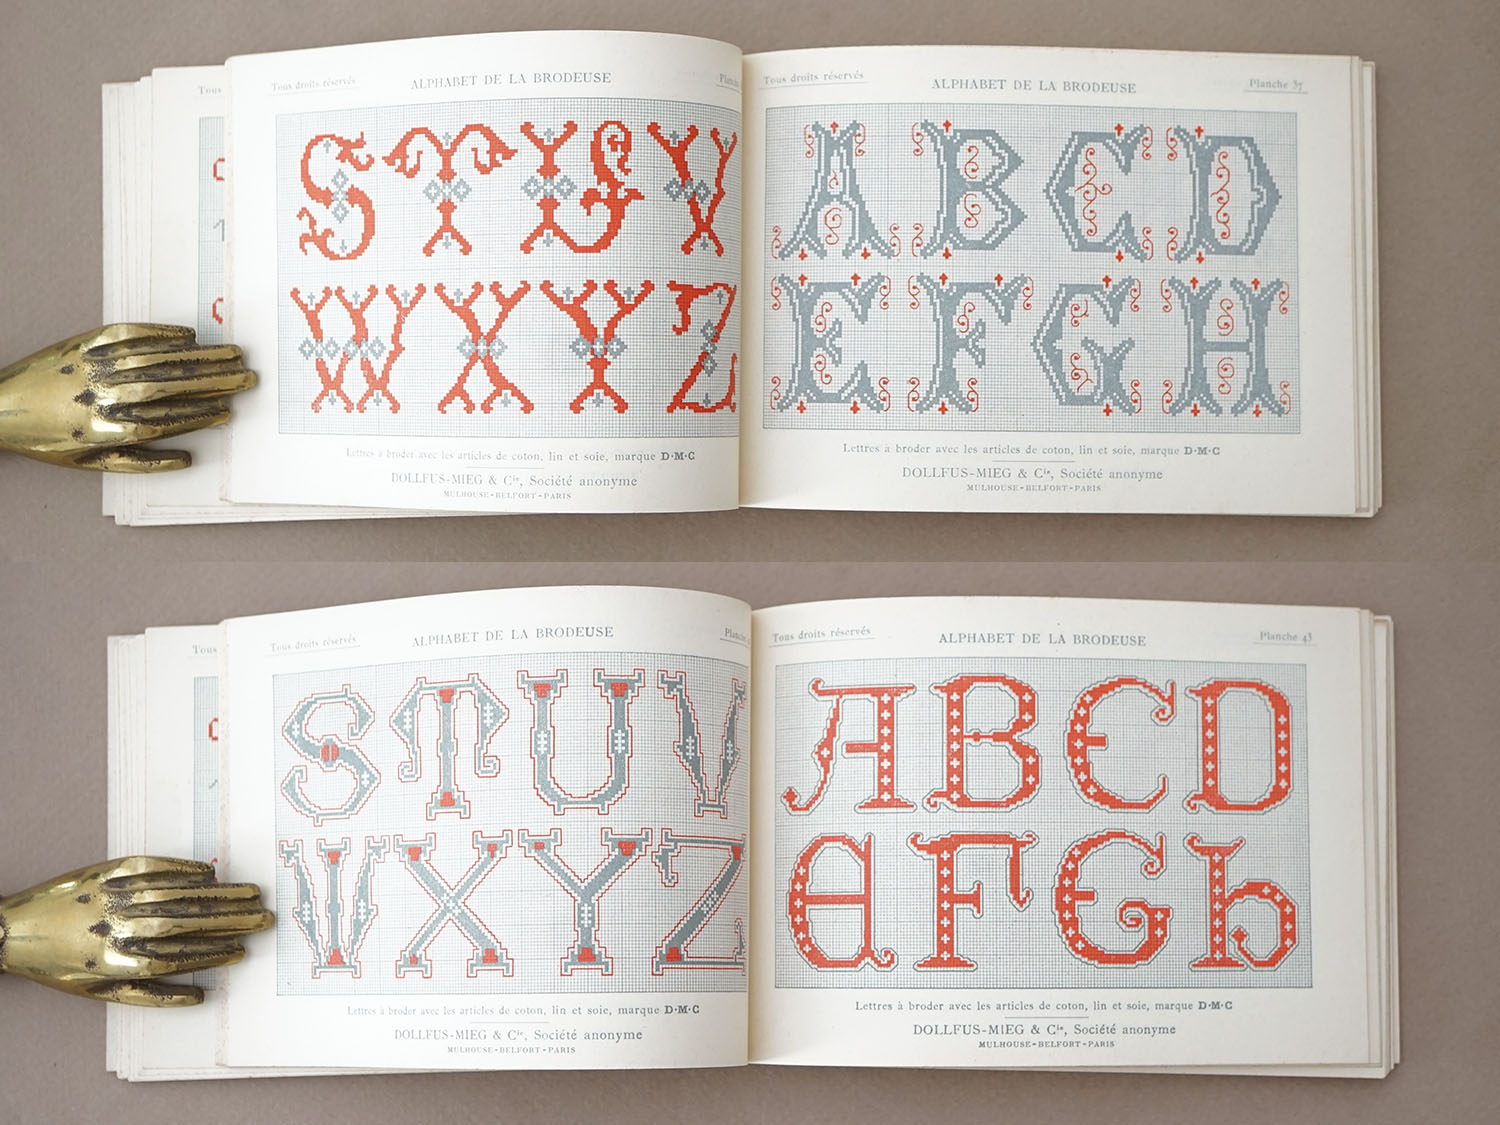 Tous
Tous droits réservés
ALPHABET DE LA BRODEUSE
S T U V
W X Y Z
Lettres à broder avec les articles de coton, lin et soie, marque D·M·C
DOLLFUS-MIEG & Cie, Société anonyme
MULHOUSE-BELFORT-PARIS
Tous droits réservés
ALPHABET DE LA BRODEUSE
Planche 37
A B C D
E F G H
Lettres à broder avec les articles de coton, lin et soie, marque D·M·C
DOLLFUS-MIEG & Cie, Société anonyme
MULHOUSE-BELFORT-PARIS
Tous
Tous droits réservés
ALPHABET DE LA BRODEUSE
S T U V
W X Y Z
Lettres à broder avec les articles de coton, lin et soie, marque D·M·C
DOLLFUS-MIEG & Cie, Société anonyme
MULHOUSE-BELFORT-PARIS
Tous droits réservés
ALPHABET DE LA BRODEUSE
Planche 43
A B C D
E F G h
Lettres à broder avec les articles de coton, lin et soie, marque D·M·C
DOLLFUS-MIEG & Cie, Société anonyme
MULHOUSE-BELFORT-PARIS